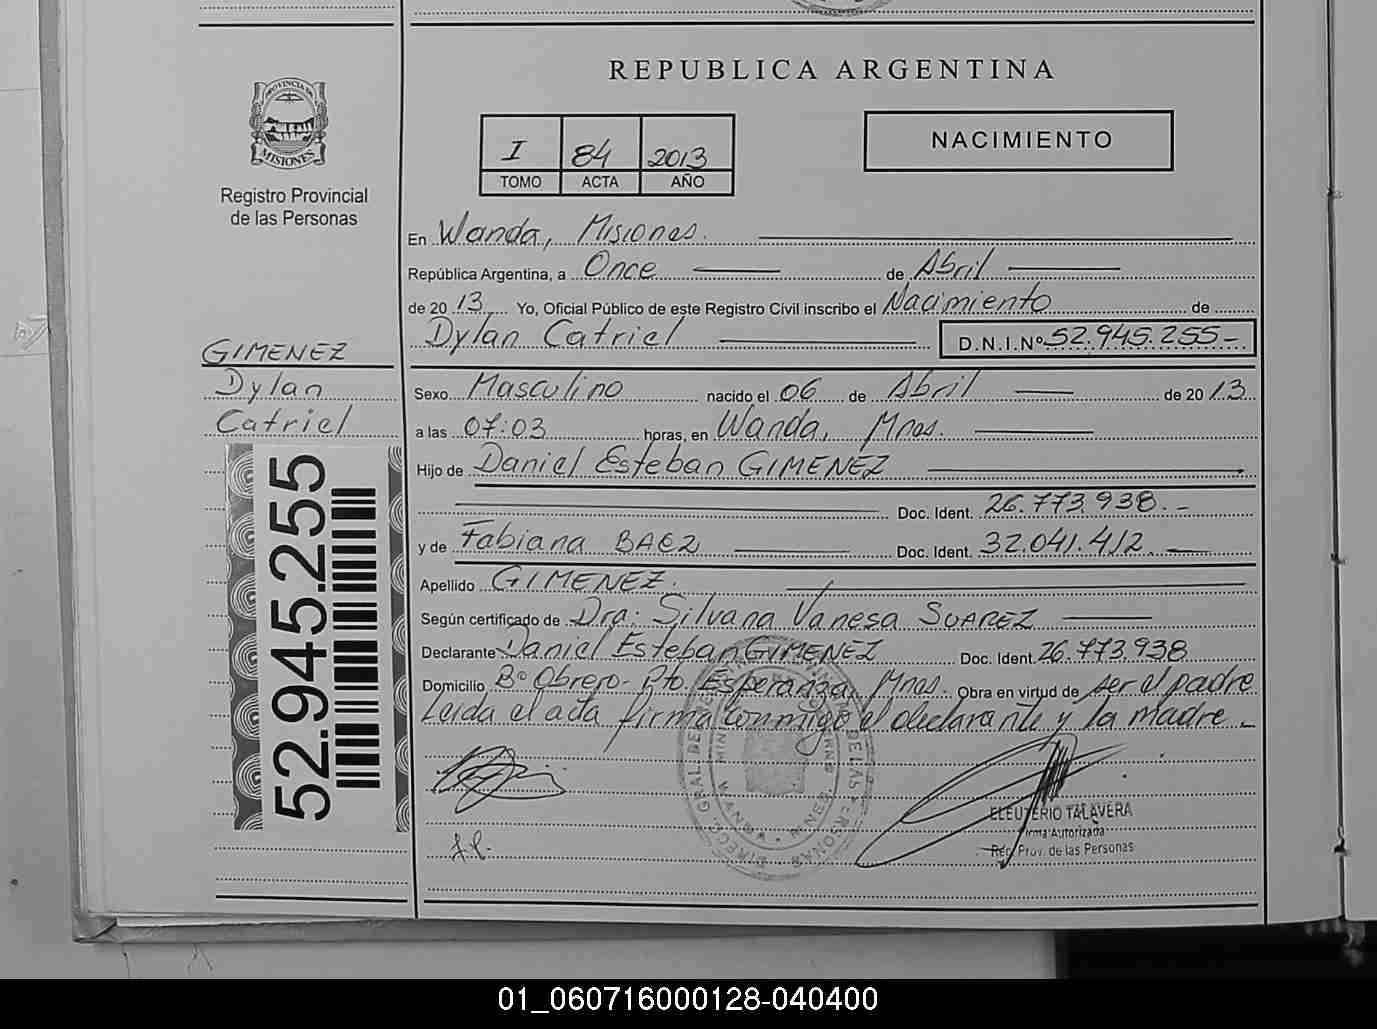 PROVINCIA DE
MISIONES
Registro Provincial
de las Personas
REPUBLICA ARGENTINA
I 84 2013
TOMO ACTA AÑO
NACIMIENTO
En Wanda, Misiones.
República Argentina, a Once de Abril
de 20 13 Yo, Oficial Público de este Registro Civil inscribo el Nacimiento de
Dylan Catriel D.N.I.Nº 52.945.255-
GIMENEZ
Dylan
Catriel
52.945.255
Sexo Masculino nacido el 06 de Abril de 20 13
a las 07:03 horas, en Wanda, Mnes.
Hijo de Daniel Esteban GIMENEZ
Doc. Ident. 26.773.938.-
y de Fabiana BAEZ Doc. Ident. 32.041.412
Apellido GIMENEZ.
Según certificado de Dra: Silvana Vanesa SUAREZ
Declarante Daniel Esteban GIMENEZ Doc. Ident. 26.773.938
Domicilio Bº Obrero- Pto. Esperanza, Mnes. Obra en virtud de ser el padre
Leida el acta firma conmigo el declarante y la madre.-
ELEUTERIO TALAVERA
Firma Autorizada
Reg. Prov. de las Personas
WANDA - MNES
01_060716000128-040400